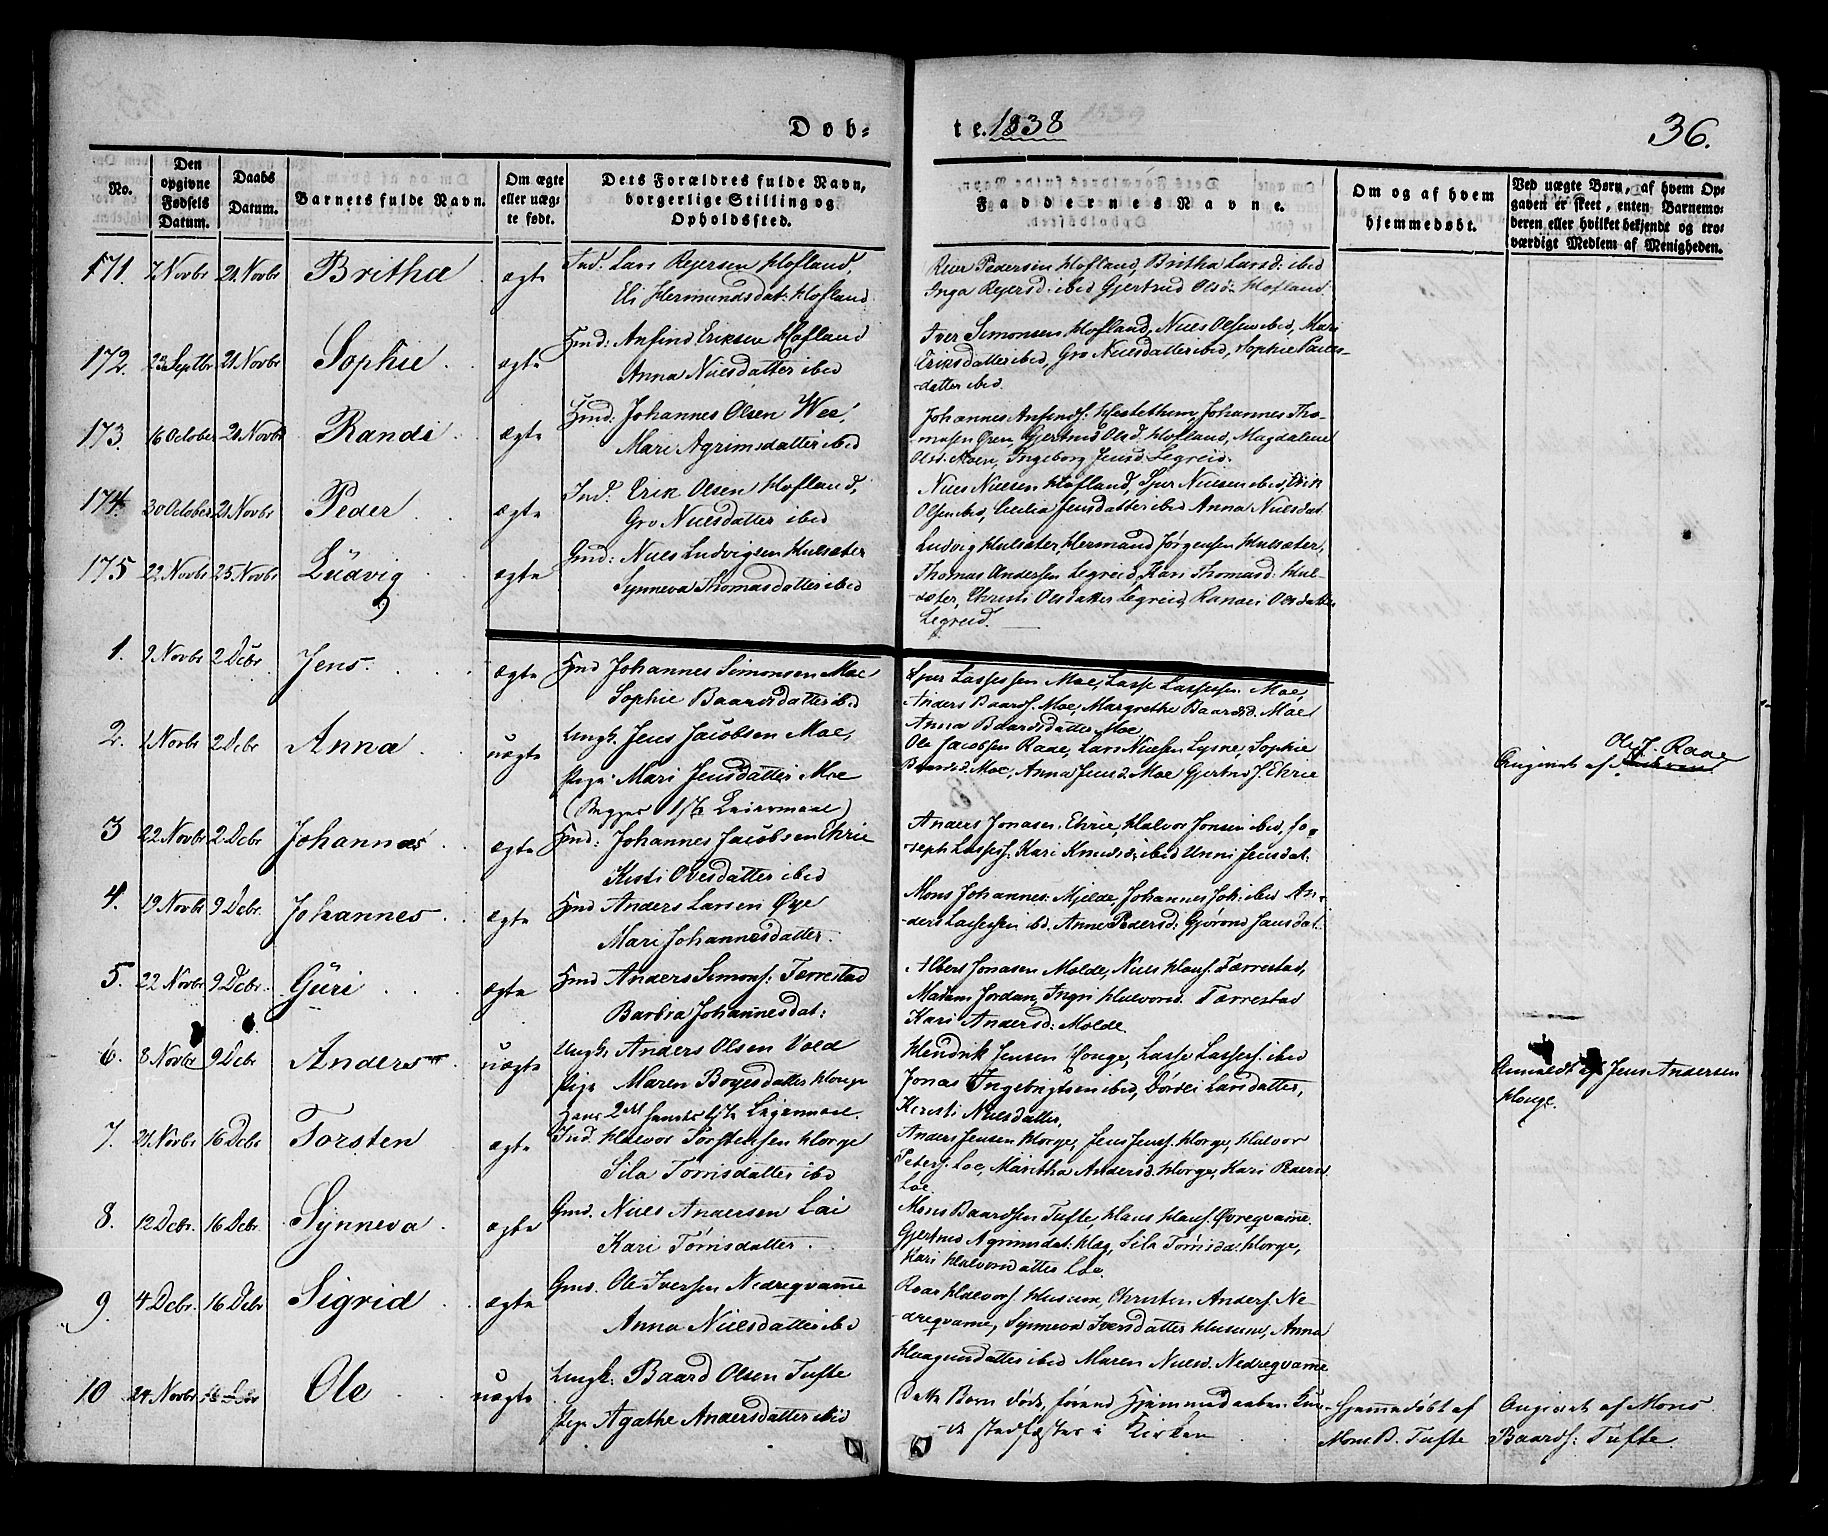 Døb-
te. 1838
36.
No.
Den opgivne Fødsels Datum.
Daabs Datum.
Barnets fulde Navn.
Om ægte eller uægte født.
Dets Forældres fulde Navn, borgerlige Stilling og Opholdssted.
Faddernes Navne.
Om og af hvem hjemmedøbt.
Ved uægte Børn, af hvem Opgaven er skeet, enten Barnemoderen eller hvilket bekjendt og troværdigt Medlem af Menigheden.
171. 7 Novbr 21 Novbr Britha ægte Ind. Lars Rejersen Hofland,
Eli Hermundsdat: Hofland
Reier Pedersen Hofland, Britha Larsd: ibid
Inga Rejersd: ibid Gjertrud Olsd: Hofland.
172. 23 Septbr 21 Novbr Sophie ægte Hmd: Anfind Eriksen Hofland
Anna Nielsdatter ibid
Iver Simonsen Hofland, Niels Olsen ibid, Mari
Eriksdatter ibid, Gro Nielsdatter ibid, Sophie Pauls-
datter ibid.
173. 16 October 21 Novbr Randi ægte Hmd: Johannes Olsen Wee,
Mari Agrimsdatter ibid
Johannes Anfinds: Hestethum, Johannes Tho-
masen Øren, Gjertrud Olsd. Hofland, Magdalene
Olsd: Moen, Ingeborg Jensd: Legreid.
174. 30 October 21 Novbr Peder ægte Ind: Erik Olsen Hofland,
Gro Nielsdatter ibid
Niels Nielsen Hofland, Sjur Nielsen ibid, Erik
Olsen ibid, Cecilia Jensdatter ibid Anna Nielsdat.
175 22 Novbr 25 Novbr Ludvig ægte Gmd: Niels Ludvigsen Hulsæter
Synneva Thomasdatter ibid
Ludvig Hulsæter, Hermand Jørgensen Hulsæter,
Thomas Andersen Legreid, Kari Thomasd: Hul-
sæter, Christi Olsdatter Legreid, Randei Olsdatter
Legreid.
1. 9 Novbr 2 Dcbr. Jens. ægte Hmd Johannes Simonsen Moe
Sophie Baardsdatter ibid
Sjur Lassessen Moe, Lasse Lassesen Moe,
Anders Baards. Moe, Margrethe Baardsd. Moe
Anna Baardsdatter Moe,
2. 1 Novbr 2 Dcbr Anna uægte Ungk. Jens Jacobsen Moe,
Pige: Mari Jensdatter Moe
(Begges 1ste Leiermaal)
Ole Jacobsen Raae, Lars Nielsen Lysne, Sophie
Baardsd. Moe, Anna Jensd. Moe Gjertrud J. Ehrie
Ole J. Raae
Angivet af
3 22 Novbr 2 Dcbr Johannes ægte Hmd: Johannes Jacobsen Ehrie
Kisti Olesdatter ibid
Anders Jonasen Ehrie, Halvor Jonsen ibid, Jo-
seph Lasses: Kari Knudsd: ibid Unni Jensdat:
4. 19 Novbr 9 Dcbr. Johannes ægte Hmd Anders Larsen Øye
Mari Johannesdatter.
Mons Johannes: Mjelde, Johannes Joh: ibid An-
ders Lassessen ibd. Anne Pedersd: Gjørond Jansdat.
5. 22 Novbr 9 Dcbr. Guri ægte Hmd Anders Simons: Tærrestad
Barbra Johannesdat:
Albert Jonasen Molde, Niels Klaus. Tærrestad,
Madam Jordan, Ingri Halvorsd. Tærrestad
Kari Andersd: Molde.
6. 8 Novbr 9 Dcbr Anders uægte Ungk. Anders Olsen Vold
Pige Maren Boyesdatter Horge
Hans 2det hendes 1ste Leiermaal.
Hendrik Jensen Horge, Lasse Lasses: ibid
Jonas Ingebrigtsen ibid, Dordei Larsdatter,
Kirsti Nielsdatter,
Anmeldt af Jens Andersen
Horge.
7. 21 Novbr 16 Dcbr Torsten ægte Ind. Halvor Torstensen Horge
Sila Torrisdatter ibid
Anders Jensen Horge, Jens Jens: Horge, Halvor
Peters: Loe, Maritha Andersd. Horge, Kari
Loe
8. 12 Dcbr. 16 Dcbr. Synneva ægte Gmd. Niels Andersen Lai
Kari Tørrisdatter.
Mons Baardsen Tufte, Klaus Klaus: Øvreqvamme.
Gjertrud Agrimsdat: Hæg, Sila Tørrisda: Horge,
Kari Halvorsdatter Loe.
9. 4 Dcbr. 16 Dcbr Sigrid ægte Gmd. Ole Iversen Nedreqvamme
Anna Nielsdatter ibid
Roar Halvors: Husum, Christen Anders: Ne-
dreqvame, Synneva Iversdatter Husum, Anna
Haagensdatter ibid Maren Nielsd. Nedreqvamme
10 24 Novbr Ole uægte Ungk: Baard Olsen Tufte
Pige Agathe Andersdatter ibid
Dette Barn døde, førend Hjemmedaaben kun-
de stadfæstes i Kirken
Hjemmedøbt af
Mons B. Tufte
Angivet af Mons
Baards: Tufte.